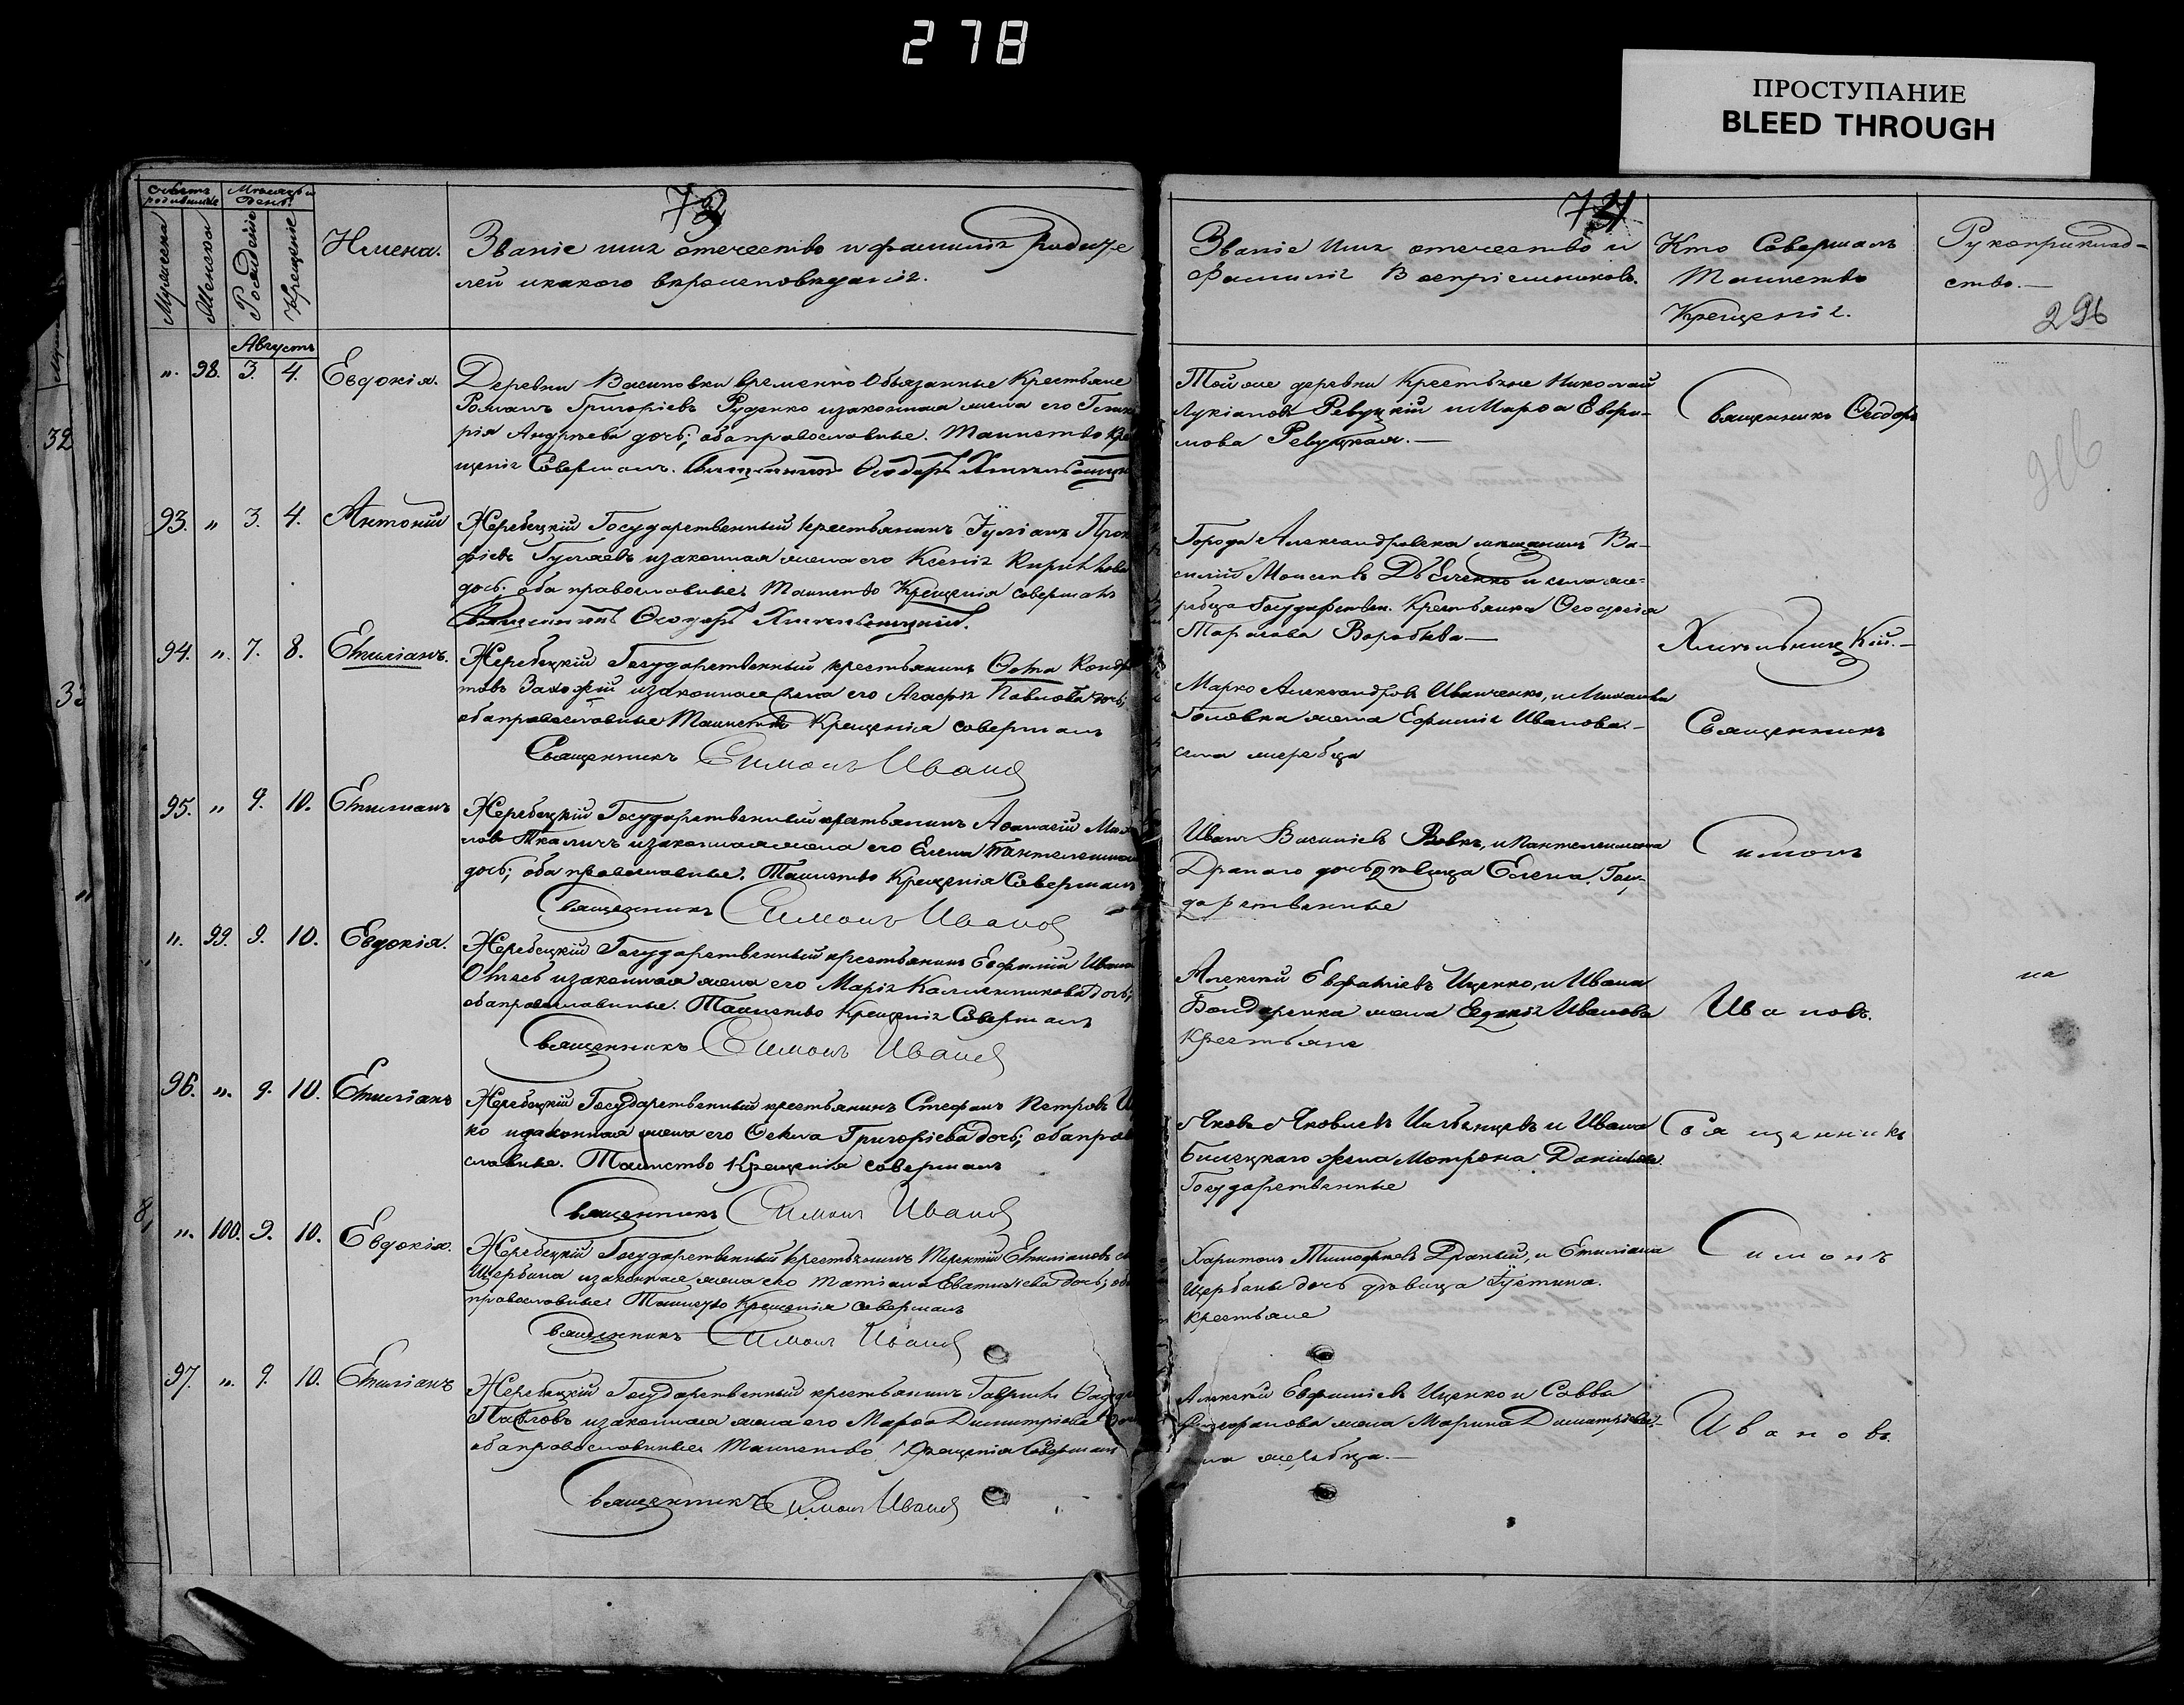 278
ПРОСТУПАНИЕ
BLEED THROUGH
Счетъ родившихся
Мѣсяцъ и день.
Мужеска
Женска
Рожденіе
Крещеніе
Имена.
73
Званіе имя отечество и фамилія Родите
лей и какого вѣроисповѣданія.
74
Званіе Имя отечество и
Фамилія Воспріемниковъ.
Кто Совершалъ
Таинство
Крещенія.
Рукоприклад-
ство.—
296
Августъ
„. 98. 3. 4. Евдокія.
Деревни Васиновки временно Обязанные Крестьяне
Романъ Григоріевъ Руденко и законная жена его
рія Андреева дочь; оба православные. Таинство Кре
щенія Совершалъ. Священникъ Ѳеодоръ Хмельницкій
Той же деревни Крестьяне Николай
Лукіановъ Ревуцкій и Марѳа Евфи-
мова Ревуцкая.—
Священникъ Ѳеодоръ
93. „ 3. 4. Антоній
Жеребецкій Государственный крестьянинъ Іуліанъ Прок
фіевъ Гуляевъ и законная жена его Ксенія Кирилова
дочь; оба православные Таинство Крещенія совершалъ
Священникъ Ѳеодоръ Хмельницкій.
Города Александровска мещанинъ Ва-
силій Моисеевъ и села же-
ребца Государствен. Крестьянка Ѳеодосія
Тарасова Воробьева—
Хмельницкій.—
94. „. 7. 8. Емиліанъ.
Жеребецкій Государственный крестьянинъ Ѳома Кондра
товъ и законная жена его Агафія Павлова дочь;
оба православные Таинство Крещенія совершалъ
Священникъ Симонъ Ивановъ
Марко Александровъ Иванченко, и Михаила
Головка жена Ефимія Иванова.—
села жеребца
Священникъ
95. „ 9. 10. Емиліанъ
Жеребецкій Государственный крестьянинъ Аѳанасій
ловъ Ткаличъ и законная жена его Елена Пантелеимонова
дочь; оба православные. Таинство Крещенія Совершалъ
Священникъ Симонъ Ивановъ
Иванъ Василіевъ Вовкъ, и Пантелеимона
Драного дочь девица Елена. Госу-
дарственные
Симонъ
„. 99. 9. 10. Евдокія.
Жеребецкій Государственный крестьянинъ Евфимій Ивана
и законная жена его Марія Каллиникова дочь;
оба православные. Таинство Крещенія Совершалъ
Священникъ Симонъ Ивановъ
Алексѣй Ищенко, и Ивана
Бондаренка жена Евдокія Иванова
Крестьяне
Ивановъ.
96. „. 9. 10. Емиліанъ
Жеребецкій Государственный крестьянинъ Стефанъ Петровъ
ко и законная жена его Григоріева дочь; оба право
славные. Таинство Крещенія совершалъ
Священникъ Симонъ Ивановъ
Яковъ Яковлевъ и Ивана
Билецкаго жена Мотрона Даніилова
Государственные
Священникъ
„. 100. 9. 10. Евдокія.
Жеребецкій Государственный крестьянинъ Терентій Емиліановъ
Щербина и законная жена его Татіана дочь; оба
православные Таинство Крещенія совершалъ
Священникъ Симонъ Ивановъ
Харитонъ Тимофеевъ Драный, и Емиліана
Щербины дочь девица Іустина.
крестьяне
Симонъ
97. „. 9. 10. Емиліанъ
Жеребецкій Государственный крестьянинъ Гавріилъ
Павловъ и законная жена его Марѳа Димитріева
оба православные Таинство Крещенія Совершалъ
Священникъ Симонъ Ивановъ
Алексѣй Евфиміевъ Ищенко и Савва
жена Марина Димитріева.—
села жеребца.—
Ивановъ.